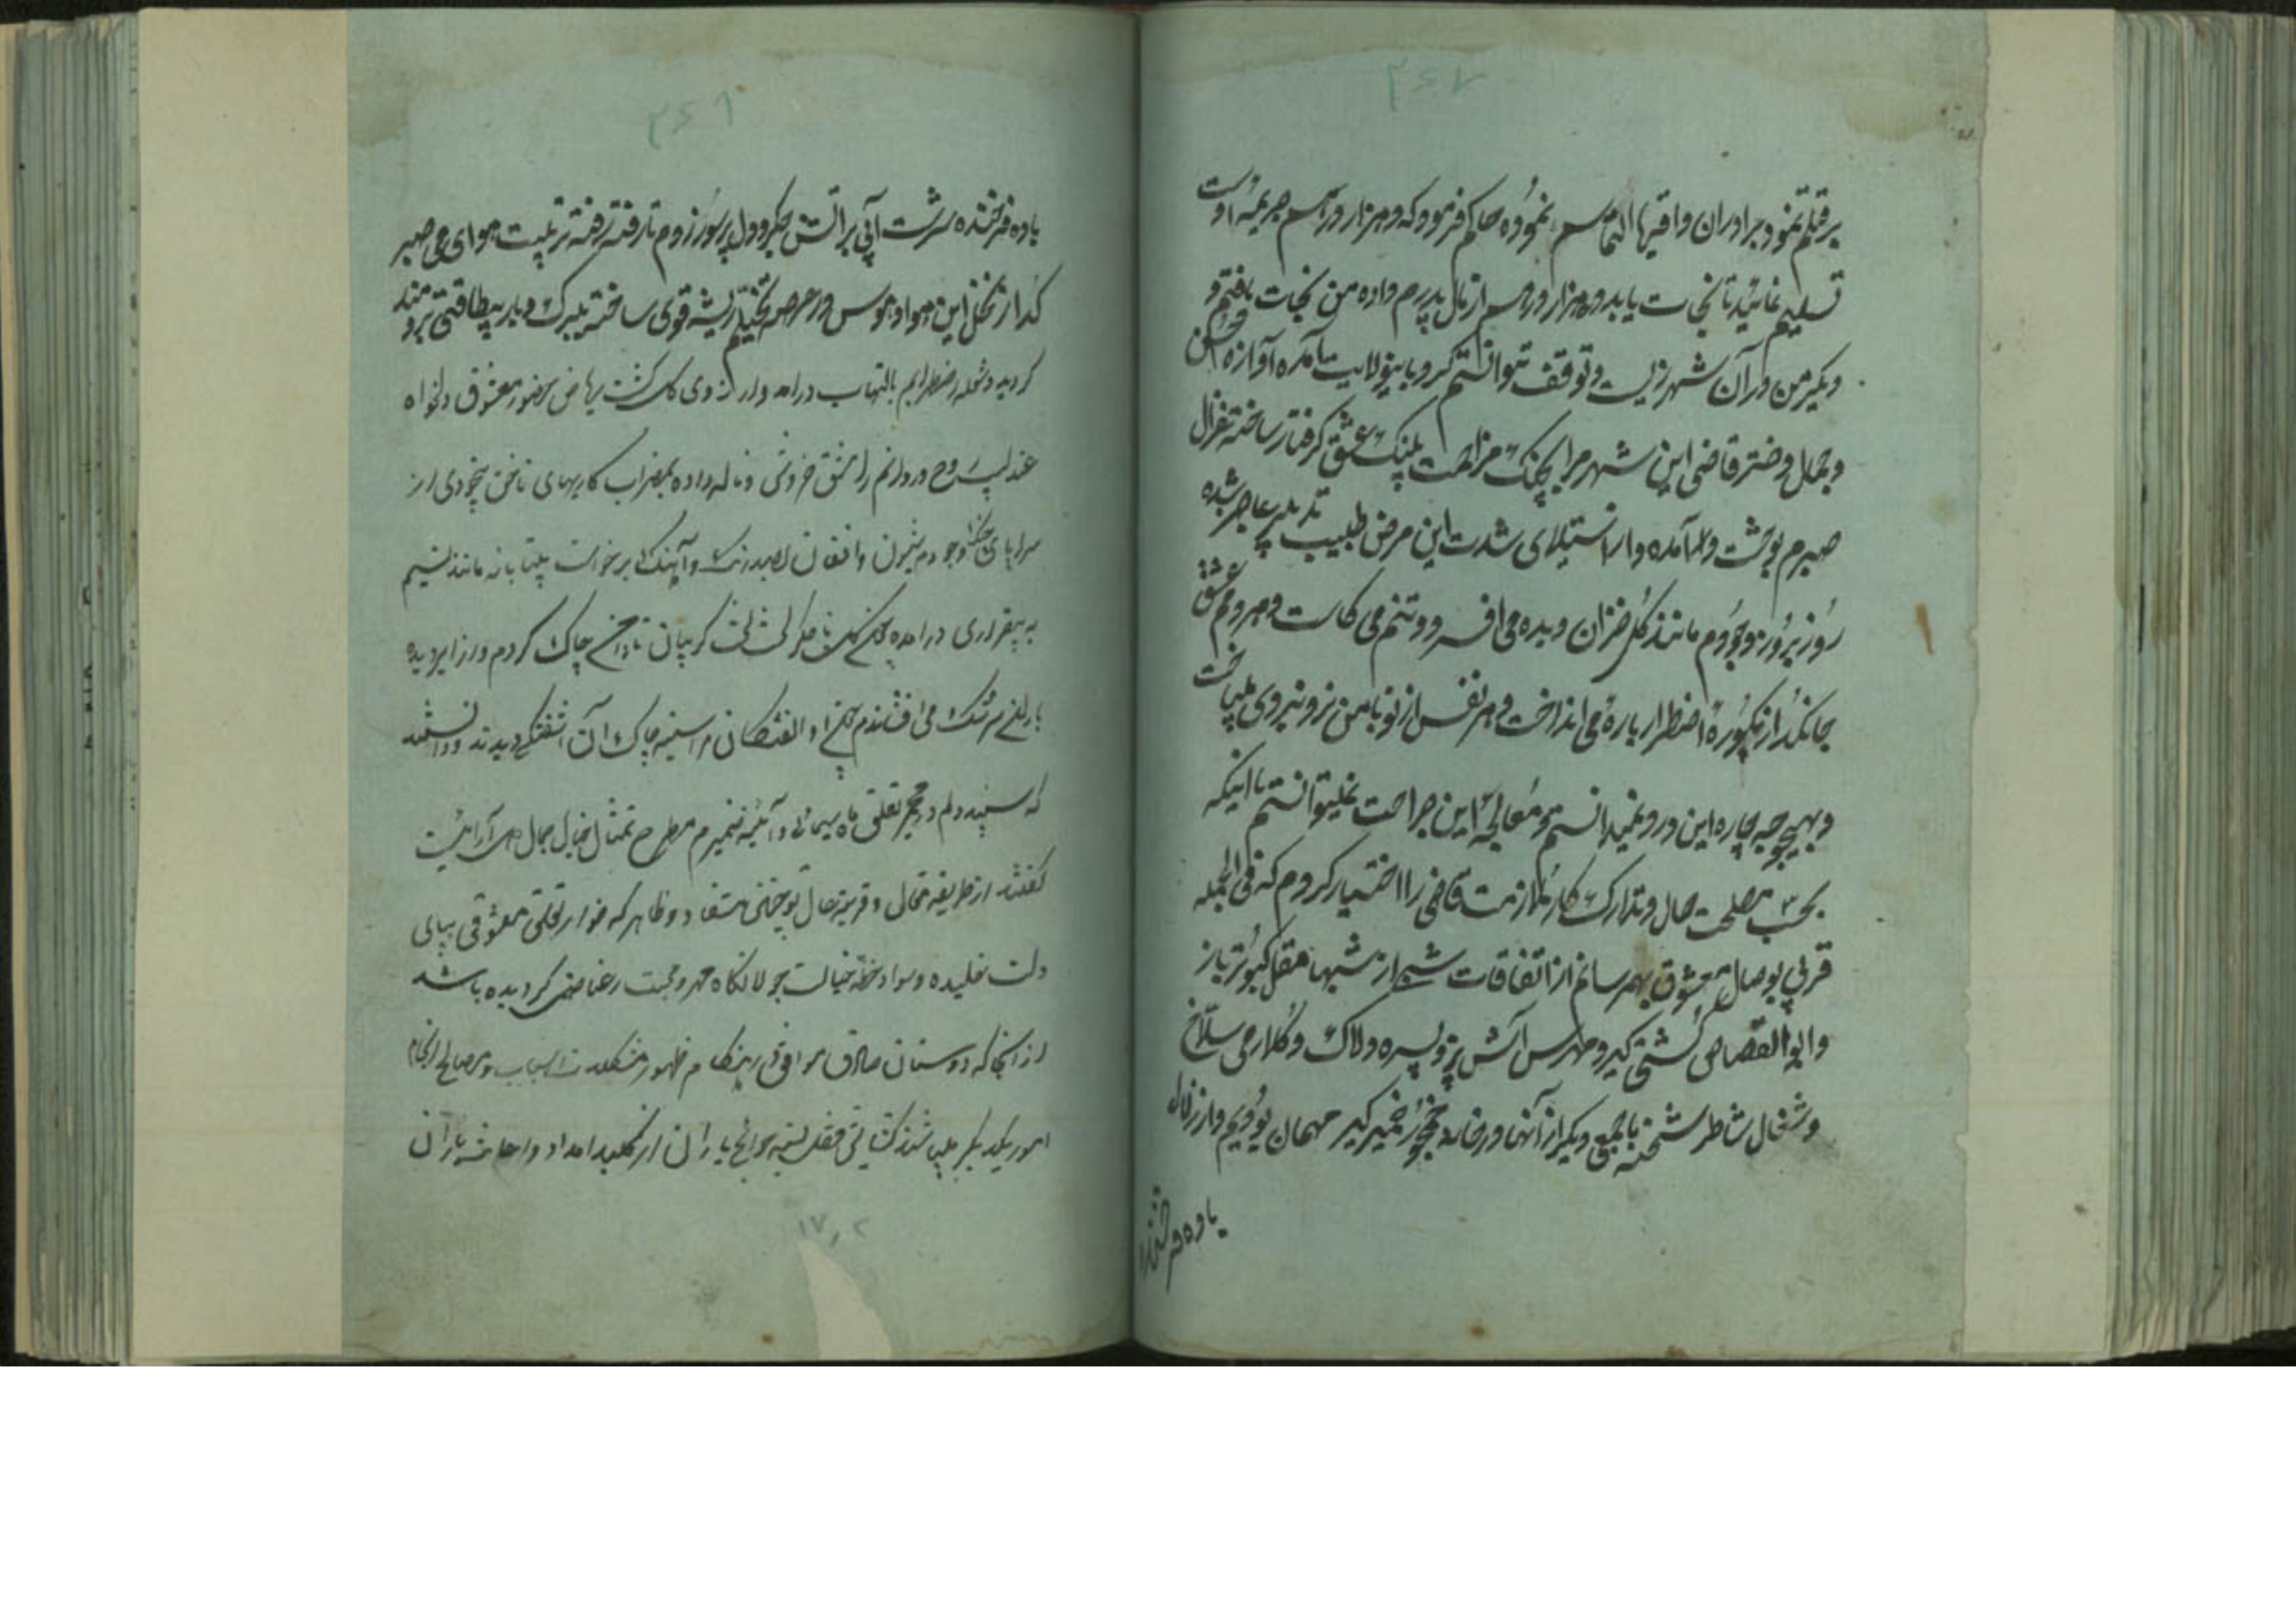 ۳۶۷
بر قتلم نمود برادران و اقربا التماس نموده حاکم فرمود که دو هزار درهم جریمه اوست
تسلیم نمائید تا نجات یابد دو هزار درهم از مال پدرم داده من نجات یافتم و
دیگر من در آن شهر زیست و توقف نتوانستم کرد باینولایت آمده آوازه حسن
و جمال دختر قاضی این شهر مرا بچنگ مزاحمت پلنگ عشق گرفتار ساخته غزال
صبرم بوحشت درآمده و از استیلای شدت این مرض طبیب تدبیر عاجز شده
روز بروز وجودم مانند گل خزان دیده می افسرد و تنم می کاست و هر دم عشق
جانگداز اضطرار پاره می انداخت و هر نفس از نو با من نرد نیروی میباخت
و بهیچوجه چاره این درد نمیدانستم و معالجه این جراحت نمیتوانستم تا اینکه
بحسب مصلحت حال و تدارک کار ملازمت قاضی را اختیار کردم که فی الجمله
قربی بوصال معشوق بهم رسانم از اتفاقات شبی از شبها مقبل کبوتر باز
و ابوالقصاص کشتی گیر و مهرس آش پز و پسره دلاک و کلارجی سلاخ
و شغال شاطر شحنه با جمعی دیگر از آنها در خانه خمیر گیر مهمان بودیم و از زلال
باده فرخنده
۳۶۸
باده فرخنده سرشت آبی بر آتش جگر و دل پرسوز زدم تا رفته رفته تربیت هوای می صبر
گداز نخل این هوا و هوس در عرصه تخیلم ریشه قوی ساخته ببرگ و بار بیطاقتی برومند
گردید و شعله اضطرابم بالتهاب درآمد و از آرزوی گلگشت ریاض حضور معشوق دلخواه
عندلیب روح در درونم را مشق خروش و ناله داده بمضراب کاریهای ناخن بیخودی از
سراپای وجودم شیون و افغان بصد رنگ و آهنگ برخواست بیتابانه مانند نسیم
به بیقراری درآمده گریبان تا دامن چاک کردم و از ابر دیده
باران سرشک می افشاندم الفتکان مرا سینه چاک آن آشفتگی دیدند و دانستند
که سپند دلم در مجمر تعلق ماه سیمائی و آئینه ضمیرم مطرح تمثال خیال جمال آرائیست
گفتند از طریقه مقال و قرینه حال تو چنین مستفاد و ظاهر که خار تعلق معشوقی بپای
دلت خلیده و سواد خطه خیالت جولانگاه مهر و محبت رعنا صنمی گردیده باشد
از آنجا که دوستان صادق موافق هنگام ظهور مشکلات اسباب مصالح انجام
امور یکدیگر میباشند گشایش قفل بسته حوائج یاران از کلید امداد و اعانت یاران